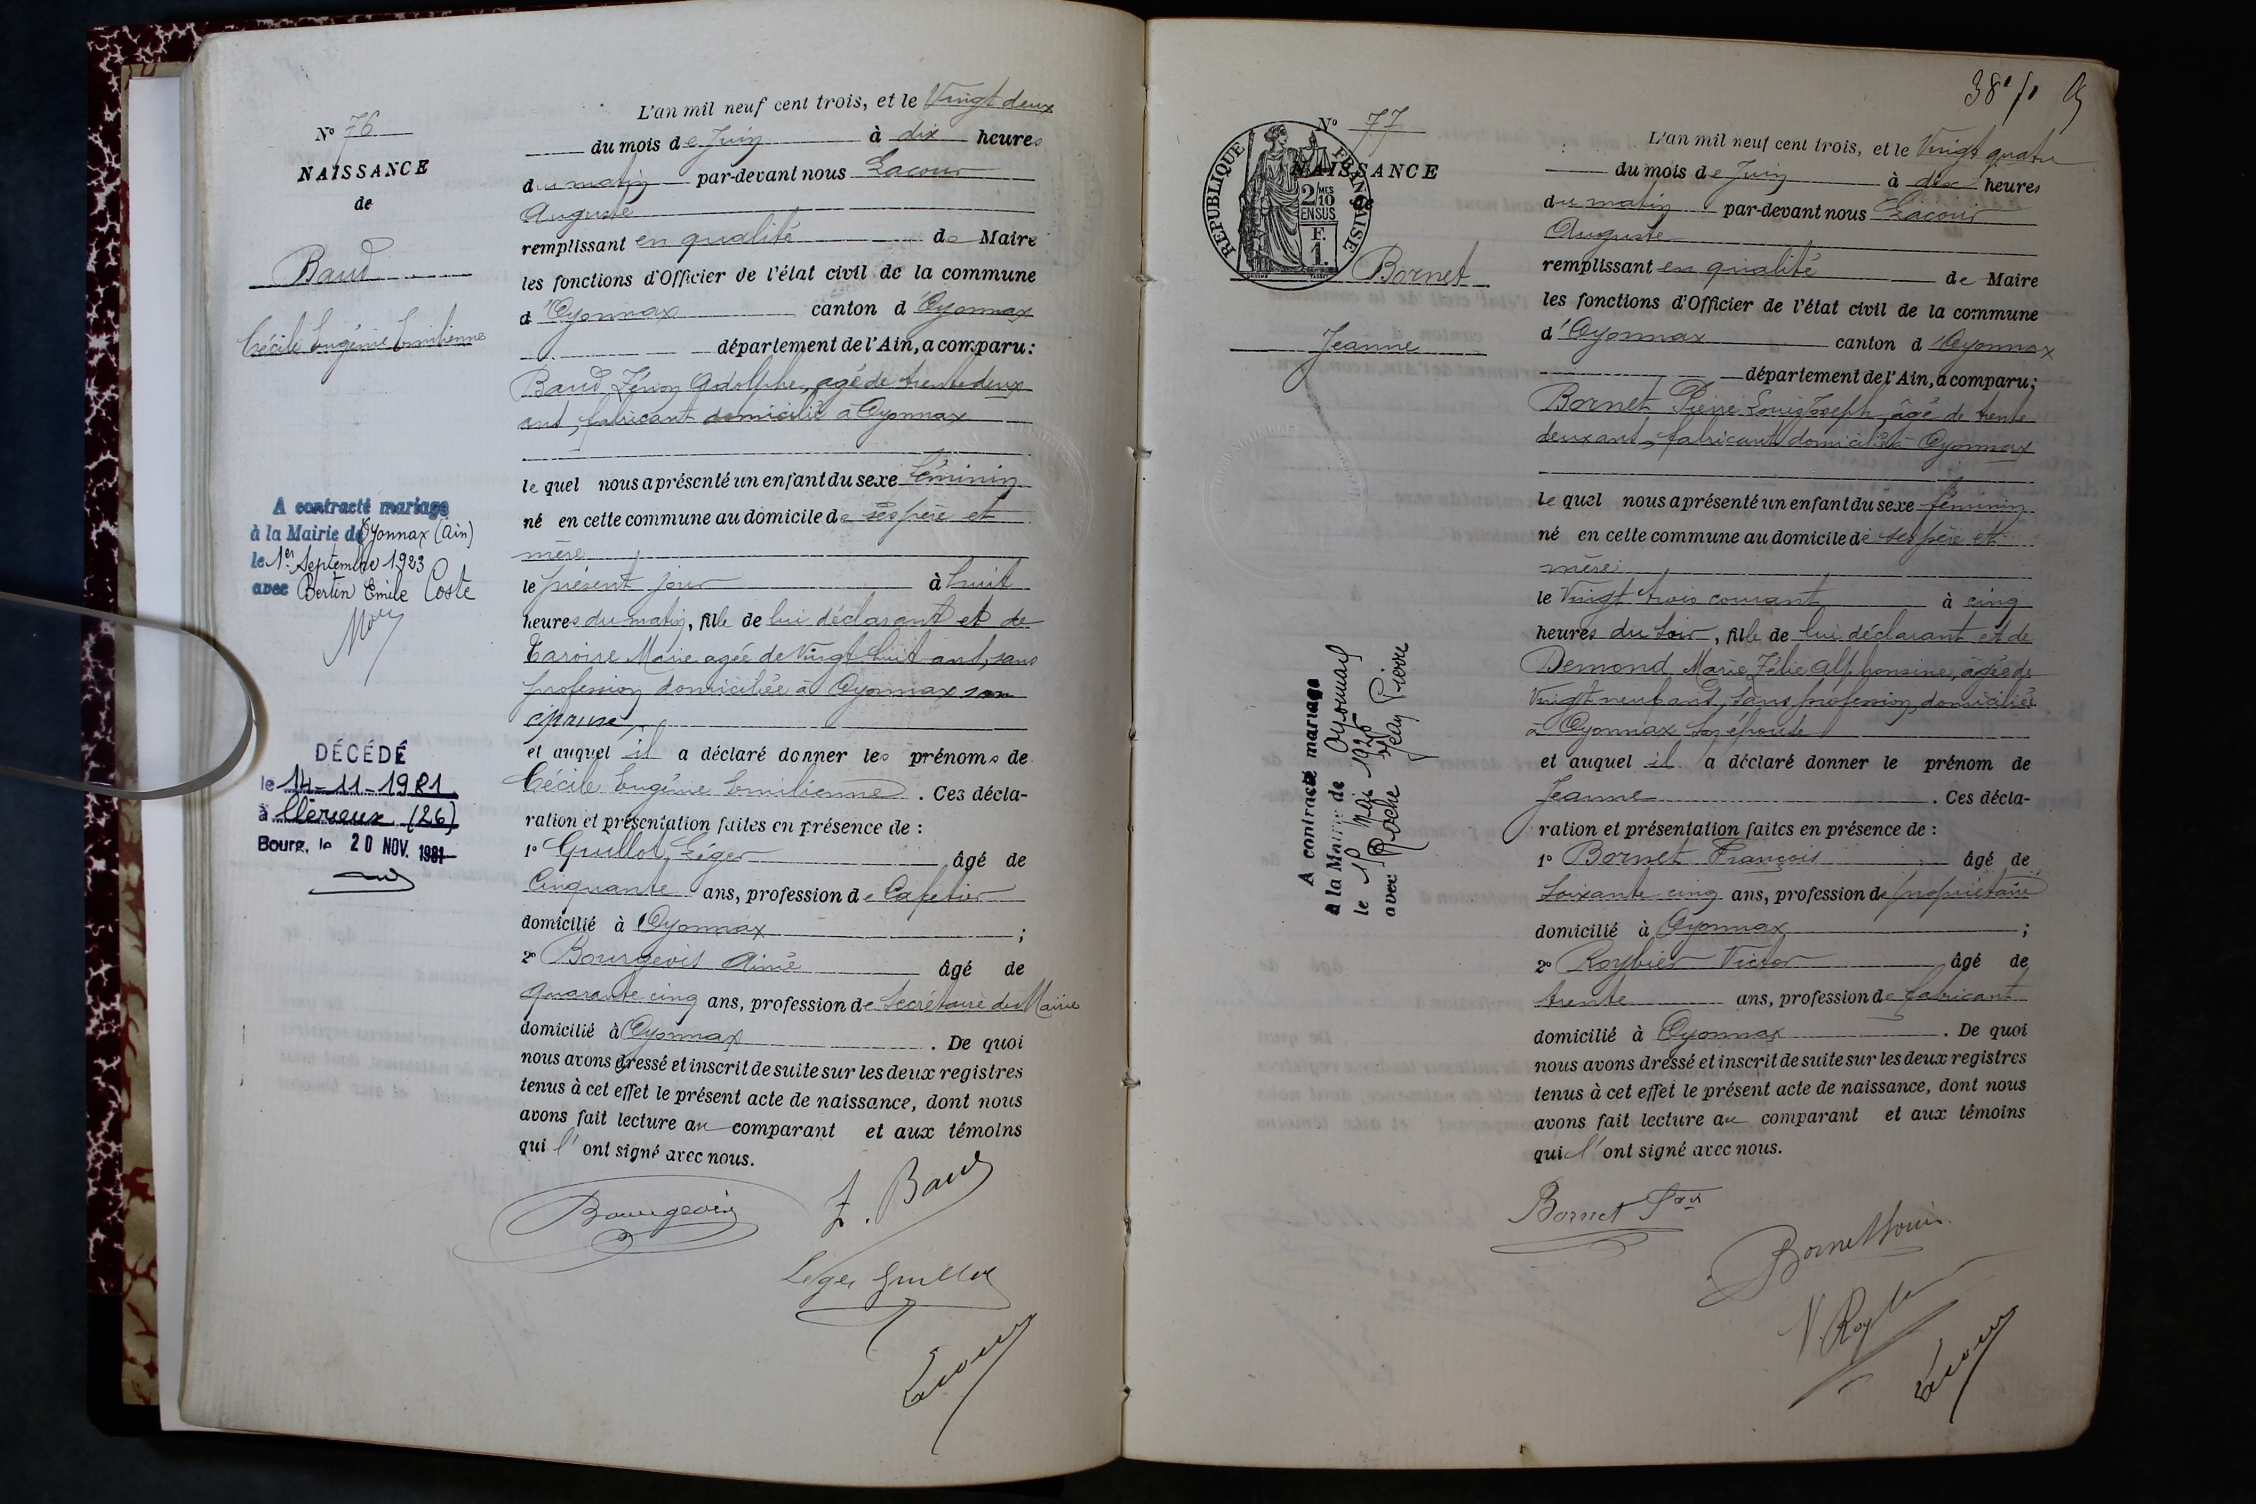 N° 76
NAISSANCE
de
Baud
Cécile Eugénie Emilienne
A contracté mariage
à la Mairie de Oyonnax (Ain)
le 1er Septembre 1923
avec Bertin Emile Coste
DÉCÉDÉ
le 14-11-1981
à Clérieux (26)
Bourg, le 20 NOV. 1981
L'an mil neuf cent trois, et le Vingt deux
du mois de Juin à dix heures
du matin par-devant nous Lacour
Auguste
remplissant en qualité de Maire
les fonctions d'Officier de l'état civil de la commune
d'Oyonnax canton d'Oyonnax
département de l'Ain, a comparu:
Baud Zénon Adolphe, agé de trente deux
ans, fabricant domicilié à Oyonnax
lequel nous a présenté un enfant du sexe féminin
né en cette commune au domicile de ses père et
mère
le présent jour à huit
heures du matin, fille de lui déclarant et de
Marie agée de Vingt huit ans, sans
profession domiciliée à Oyonnax son
épouse
et auquel il a déclaré donner les prénoms de
Cécile Eugénie Emilienne. Ces décla-
ration et présentation faites en présence de :
1° Guillot Léger âgé de
Cinquante ans, profession de Cafetier
domicilié à Oyonnax ;
2° Bourgeois Aimé âgé de
quarante cinq ans, profession de Secrétaire de Mairie
domicilié à Oyonnax. De quoi
nous avons dressé et inscrit de suite sur les deux registres
tenus à cet effet le présent acte de naissance, dont nous
avons fait lecture au comparant et aux témoins
qui l'ont signé avec nous.
Bourgeois
Z. Baud
Léger Guillot
Lacour
38
N° 77
NAISSANCE
de
RÉPUBLIQUE FRANÇAISE
2/10 MES
EN SUS
F.
1.
Bornet
Jeanne
A contracté mariage
à la Mairie de Oyonnax
le 10 Mai 1925
avec Roche Jean Pierre
L'an mil neuf cent trois, et le Vingt quatre
du mois de Juin à dix heures
du matin par-devant nous Lacour
Auguste
remplissant en qualité de Maire
les fonctions d'Officier de l'état civil de la commune
d'Oyonnax canton d'Oyonnax
département de l'Ain, a comparu;
Bornet Pierre Louis Joseph, âgé de trente
deux ans, fabricant domicilié à Oyonnax
lequel nous a présenté un enfant du sexe féminin
né en cette commune au domicile de ses père et
mère
le Vingt trois courant à cinq
heures du soir, fille de lui déclarant et de
Demond Marie Zélie Alphonsine, agée de
Vingt neuf ans, sans profession, domiciliée
à Oyonnax son épouse
et auquel il a déclaré donner le prénom de
Jeanne. Ces décla-
ration et présentation faites en présence de :
1° Bornet François âgé de
soixante cinq ans, profession de propriétaire
domicilié à Oyonnax ;
2° Roybier Victor âgé de
trente ans, profession de fabricant
domicilié à Oyonnax. De quoi
nous avons dressé et inscrit de suite sur les deux registres
tenus à cet effet le présent acte de naissance, dont nous
avons fait lecture au comparant et aux témoins
qui l'ont signé avec nous.
Bornet Fois
Bornet Louis
Lacour